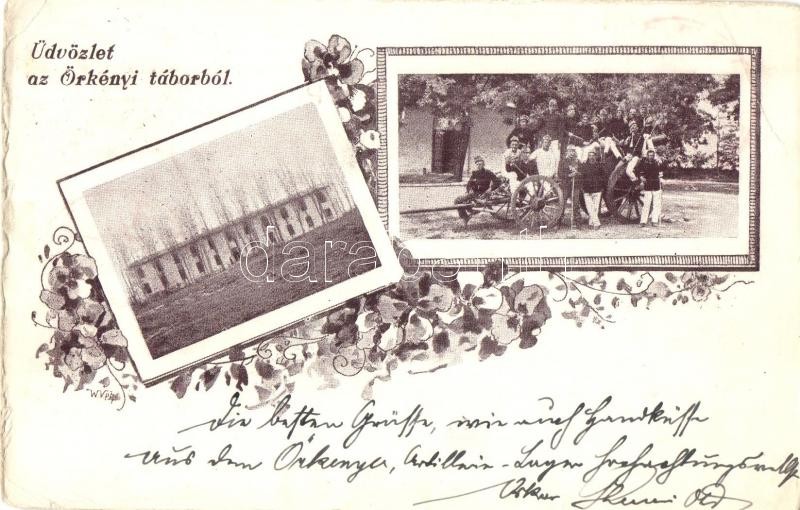 Üdvözlet
az Örkényi táborból.
darabanth
Die besten Grüsse, wie auch Handküsse
aus dem Örkenyer, Artillerie-Lager hochachtungsvollst
Oskar